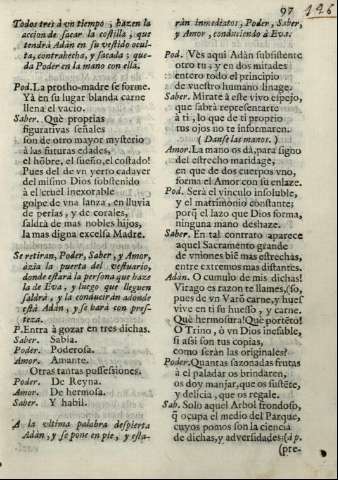 97 196
Todos tres à vn tiempo, hazen la
accion de sacar la costilla, que
tendrà Adàn en su vestido ocul-
ta, contrahecha, y sacada; que-
da Poder en la mano con ella.
Pod. La protho-madre se forme.
Yà en su lugar blanda carne
llena el vacio.
Saber. Què proprias
figurativas señales
son de otro mayor mysterio
à las futuras edades,
el hõbre, el sueño, el costado!
Pues del de vn yerto cadaver
del mismo Dios sobstenido
à el cruel inexorable
golpe de vna lanza, en lluvia
de perlas, y de corales,
saldrà de mas nobles hijos,
la mas digna excelsa Madre.
Se retiran, Poder, Saber, y Amor,
àzia la puerta del vestuario,
donde estarà la persona que haze
la de Eva, y luego que lleguen
saldrà, y la conducirán adonde
està Adàn, y se harà con pres-
teza.
P. Entra à gozar en tres dichas.
Saber. Sabia.
Poder. Poderosa.
Amor. Amante.
Otras tantas possessiones.
Poder. De Reyna.
Amor. De hermosa.
Saber. Y habil.
A la vltima palabra despierta
Adàn, y se pone en pie, y esta-
ràn inmediatos, Poder, Saber,
y Amor, conduciendo à Eva.
Pod. Vès aqui Adàn subsistente
otro tu; y en dos mitades
entero todo el principio
de vuestro humano linage.
Saber. Mirate à este vivo espejo,
que sabrà representarte
à ti, lo que de ti proprio
tus ojos no te informaren.
( Danse las manos. )
Amor. La mano os dà, para signo
del estrecho maridage,
en que de dos cuerpos vno,
forma el Amor con su enlaze.
Pod. Serà el vinculo insoluble,
y el matrimonio constante;
porq̃ el lazo que Dios forma,
ninguna mano deshaze.
Saber. En tal contrato aparece
aquel Sacramento grande
de vniones biẽ mas estrechas,
entre extremos mas distantes.
Adàn. O cumulo de mis dichas!
Virago es razon te llames, (so,
pues de vn Varõ carne, y huef
vive en ti su huesso, y carne.
Què hermosura! Què portẽto!
O Trino, ò vn Dios inefable,
si assi son tus copias,
como seràn las originales?
Poder. Quantas sazonadas frutas
à el paladar os brindaren,
os doy manjar, que os sustẽte,
y delicia, que os regale.
Sab. Solo aquel Arbol frondoso,
q̃ ocupa el medio del Parque,
cuyos pomos son la ciencia
de dichas, y adversidades: (à p.
(pre-